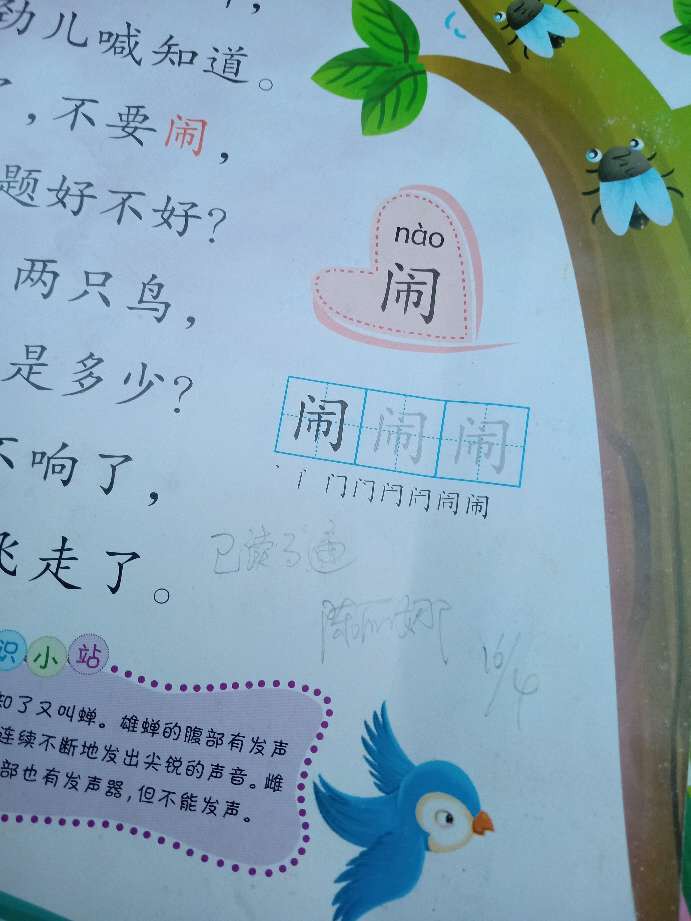 劲儿喊知道。
，不要闹，
题好不好？
两只鸟，
是多少？
不响了，
飞走了。
nào
闹
闹闹闹
丶丨门门闩闩闹闹
已读3遍
陈丽娜
10/4
识小站
知了又叫蝉。雄蝉的腹部有发声
连续不断地发出尖锐的声音。雌
部也有发声器，但不能发声。